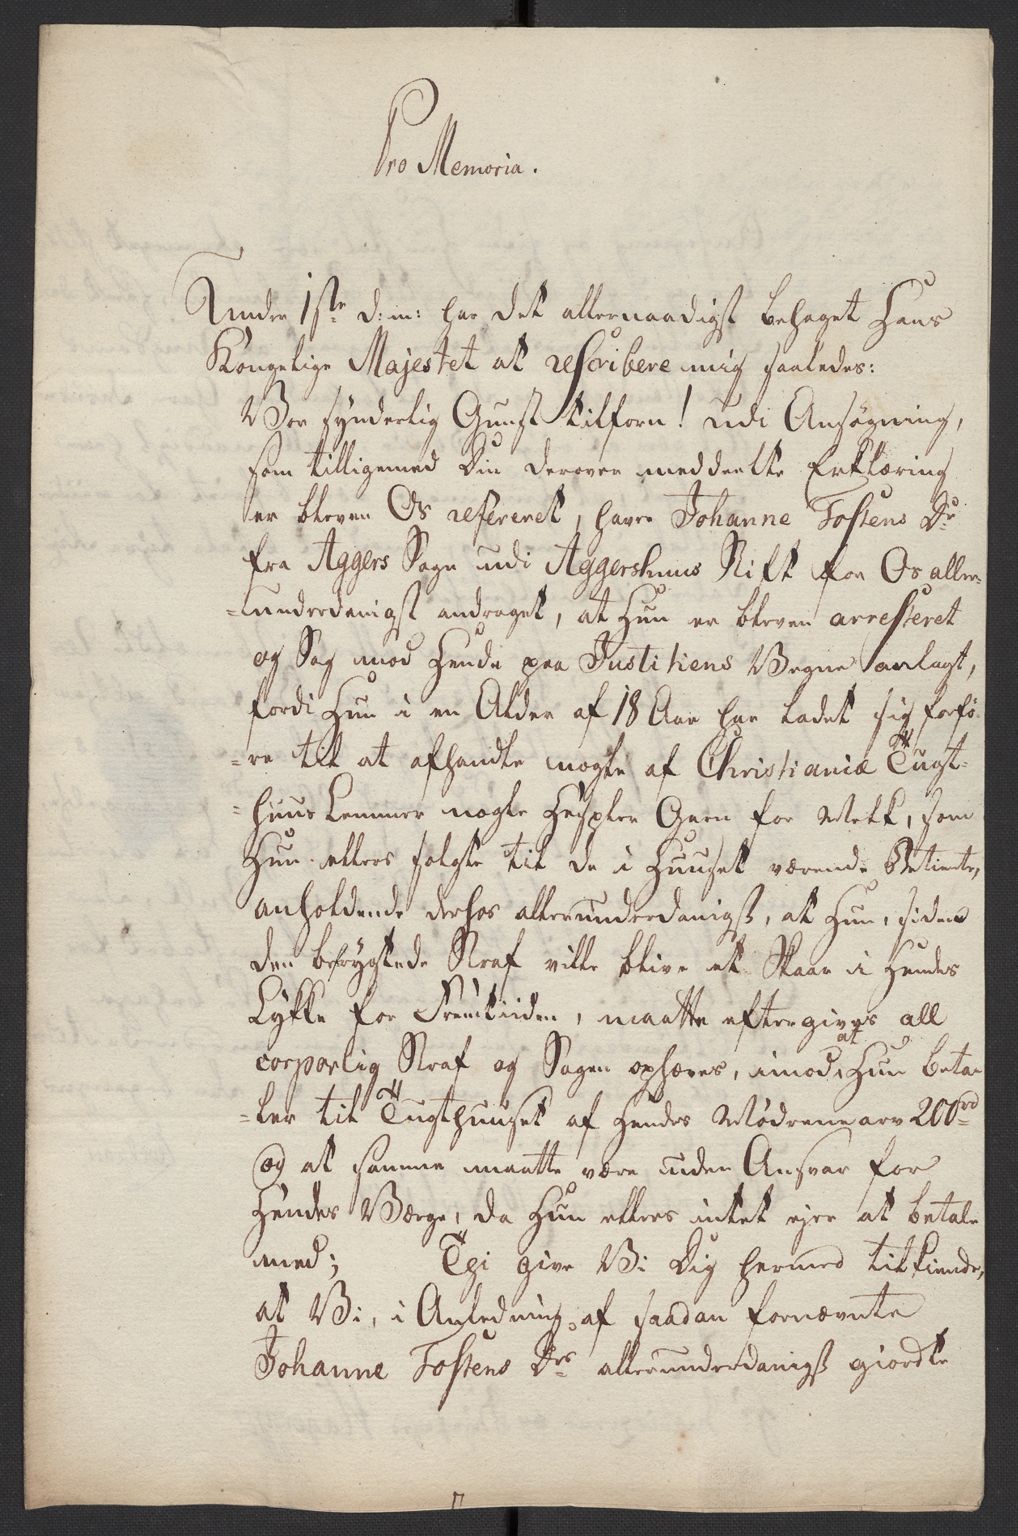 Pro Memoria.
Under 1ste d: m: har det allernaadigst behaget Hans
Kongelige Majestet at rescribere mig saaledes:
Vor synderlig Gunst tilforn! udi Ansøgning,
som tilligemed Din derover meddeelte Erklæring
er bleven Os refereret, haver Johanne Tostens Dr
fra Aggers Sogn udi Aggershuus Stift for Os aller-
-underdanigst andraget, at Hun er bleven arresteret
og Sag mod Hende paa Justitiens Vegne anlagt,
fordi Hun i en Alder af 18 Aar har ladet sig forfø-
-re til at afhandle nogle af Christiania Tugt-
-huus Lemmer nogle Hespler Garn for Melk, som
Hun ellers solgte til de i Huuset værende Betiente,
anholdende derhos allerunderdanigst, at Hun, siden
den befrygtede Straf ville blive et Skaar i Hendes
Lykke for Fremtiiden, maatte eftergives all
corporlig Straf og Sagen ophæves, imod at Hun beta-
-ler til Tugthuuset af Hendes Mødrene arv 200rd
og at samme maatte være uden Ansvar for
Hendes Værge, da Hun ellers intet ejer at betale
med; Thi give Vi Dig hermed tilkiende,
at Vi, i Anledning af saadan fornævnte
Johanne Tostens Drs allerunderdanigst giordte